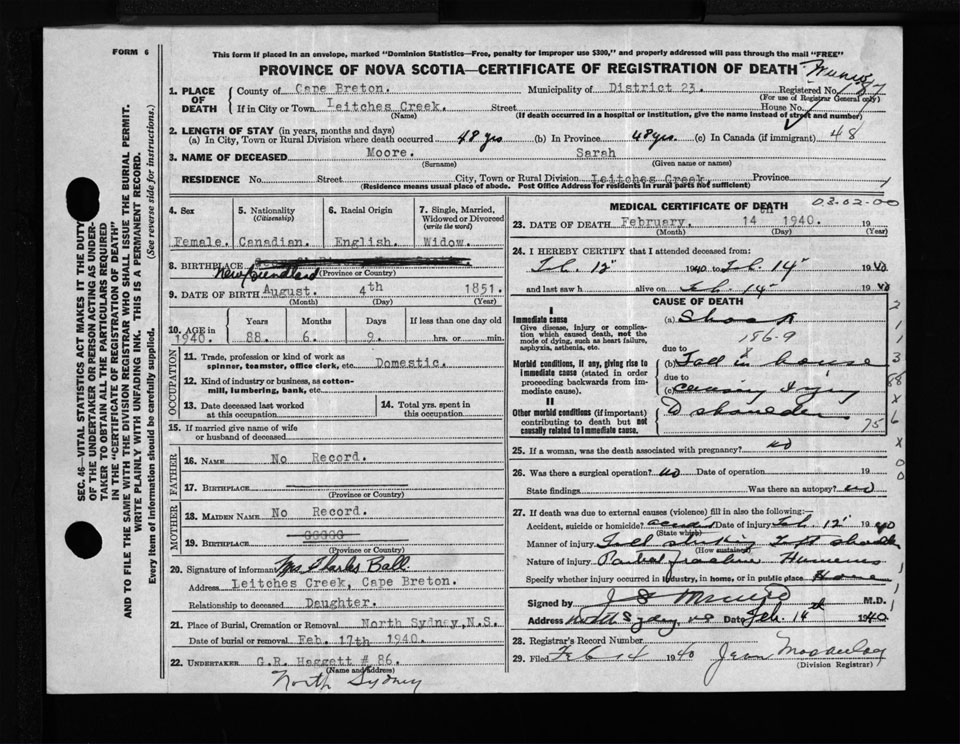 FORM 6
This form if placed in an envelope, marked "Dominion Statistics—Free, penalty for improper use $300," and properly addressed will pass through the mail "FREE"
PROVINCE OF NOVA SCOTIA—CERTIFICATE OF REGISTRATION OF DEATH
1. PLACE OF DEATH
County of Cape Breton. Municipality of District 23. Registered No.
(For use of Registrar General only)
If in City or Town Leitches Creek. Street House No.
(Name) (If death occurred in a hospital or institution, give the name instead of street and number)
2. LENGTH OF STAY (in years, months and days)
(a) In City, Town or Rural Division where death occurred 48 yrs (b) In Province 48 yrs. (c) In Canada (if immigrant) 48
3. NAME OF DECEASED Moore. Sarah
(Surname) (Given name or names)
RESIDENCE No. Street City, Town or Rural Division Leitches Creek. Province
(Residence means usual place of abode. Post Office Address for residents in rural parts not sufficient)
4. Sex
Female.
5. Nationality
(Citizenship)
Canadian.
6. Racial Origin
English.
7. Single, Married, Widowed or Divorced
(write the word)
Widow.
8. BIRTHPLACE
Newfoundland (Province or Country)
9. DATE OF BIRTH August. 4th 1851.
(Month) (Day) (Year)
10. AGE in 1940.
Years Months Days If less than one day old
88. 6. 9. hrs. or min.
OCCUPATION
11. Trade, profession or kind of work as
spinner, teamster, office clerk, etc. Domestic.
12. Kind of industry or business, as cotton-
mill, lumbering, bank, etc.
13. Date deceased last worked
at this occupation
14. Total yrs. spent in
this occupation
15. If married give name of wife
or husband of deceased
FATHER
16. NAME No Record.
17. BIRTHPLACE
(Province or Country)
MOTHER
18. MAIDEN NAME No Record.
19. BIRTHPLACE
(Province or Country)
20. Signature of informant Mrs Charles Ball.
Address Leitches Creek, Cape Breton.
Relationship to deceased Daughter.
21. Place of Burial, Cremation or Removal North Sydney, N.S.
Date of burial or removal Feb. 17th 1940.
22. UNDERTAKER G.R. Haggett # 86.
(Name and Address)
North Sydney
MEDICAL CERTIFICATE OF DEATH
03-02-00
23. DATE OF DEATH February. 14 th 1940. 19
(Month) (Day) (Year)
24. I HEREBY CERTIFY that I attended deceased from:
Feb. 12" 1940 to Feb. 14" 1940
and last saw h alive on Feb. 14" 1940
CAUSE OF DEATH
I
Immediate cause
Give disease, injury or complica-
tion which caused death, not the
mode of dying, such as heart failure,
asphyxia, asthenia, etc.
(a) Shock
186-9
due to
Morbid conditions, if any, giving rise to
immediate cause (stated in order
proceeding backwards from im-
mediate cause).
(b) Fall in house
due to
(c) causing injury
II
Other morbid conditions (if important)
contributing to death but not
causally related to immediate cause.
shoulder
75
25. If a woman, was the death associated with pregnancy? no
26. Was there a surgical operation? no Date of operation 19
State findings Was there an autopsy? no
27. If death was due to external causes (violence) fill in also the following:—
Accident, suicide or homicide? Date of injury Feb. 12" 1940
(State which)
Manner of injury Fell striking left shoulder
(How sustained)
Nature of injury Partial fracture Humerus
Specify whether injury occurred in industry, in home, or in public place Home
Signed by M.D.
Address North Sydney, N.S. Date Feb. 14th 1940
28. Registrar's Record Number
29. Filed Feb 14 1940
(Division Registrar)
SEC. 46—VITAL STATISTICS ACT MAKES IT THE DUTY
OF THE UNDERTAKER OR PERSON ACTING AS UNDER-
TAKER TO OBTAIN ALL THE PARTICULARS REQUIRED
IN THE "CERTIFICATE OF REGISTRATION OF DEATH"
AND TO FILE THE SAME WITH THE DIVISION REGISTRAR WHO SHALL ISSUE THE BURIAL PERMIT.
WRITE PLAINLY WITH UNFADING INK. THIS IS A PERMANENT RECORD.
Every item of information should be carefully supplied. (See reverse side for instructions.)